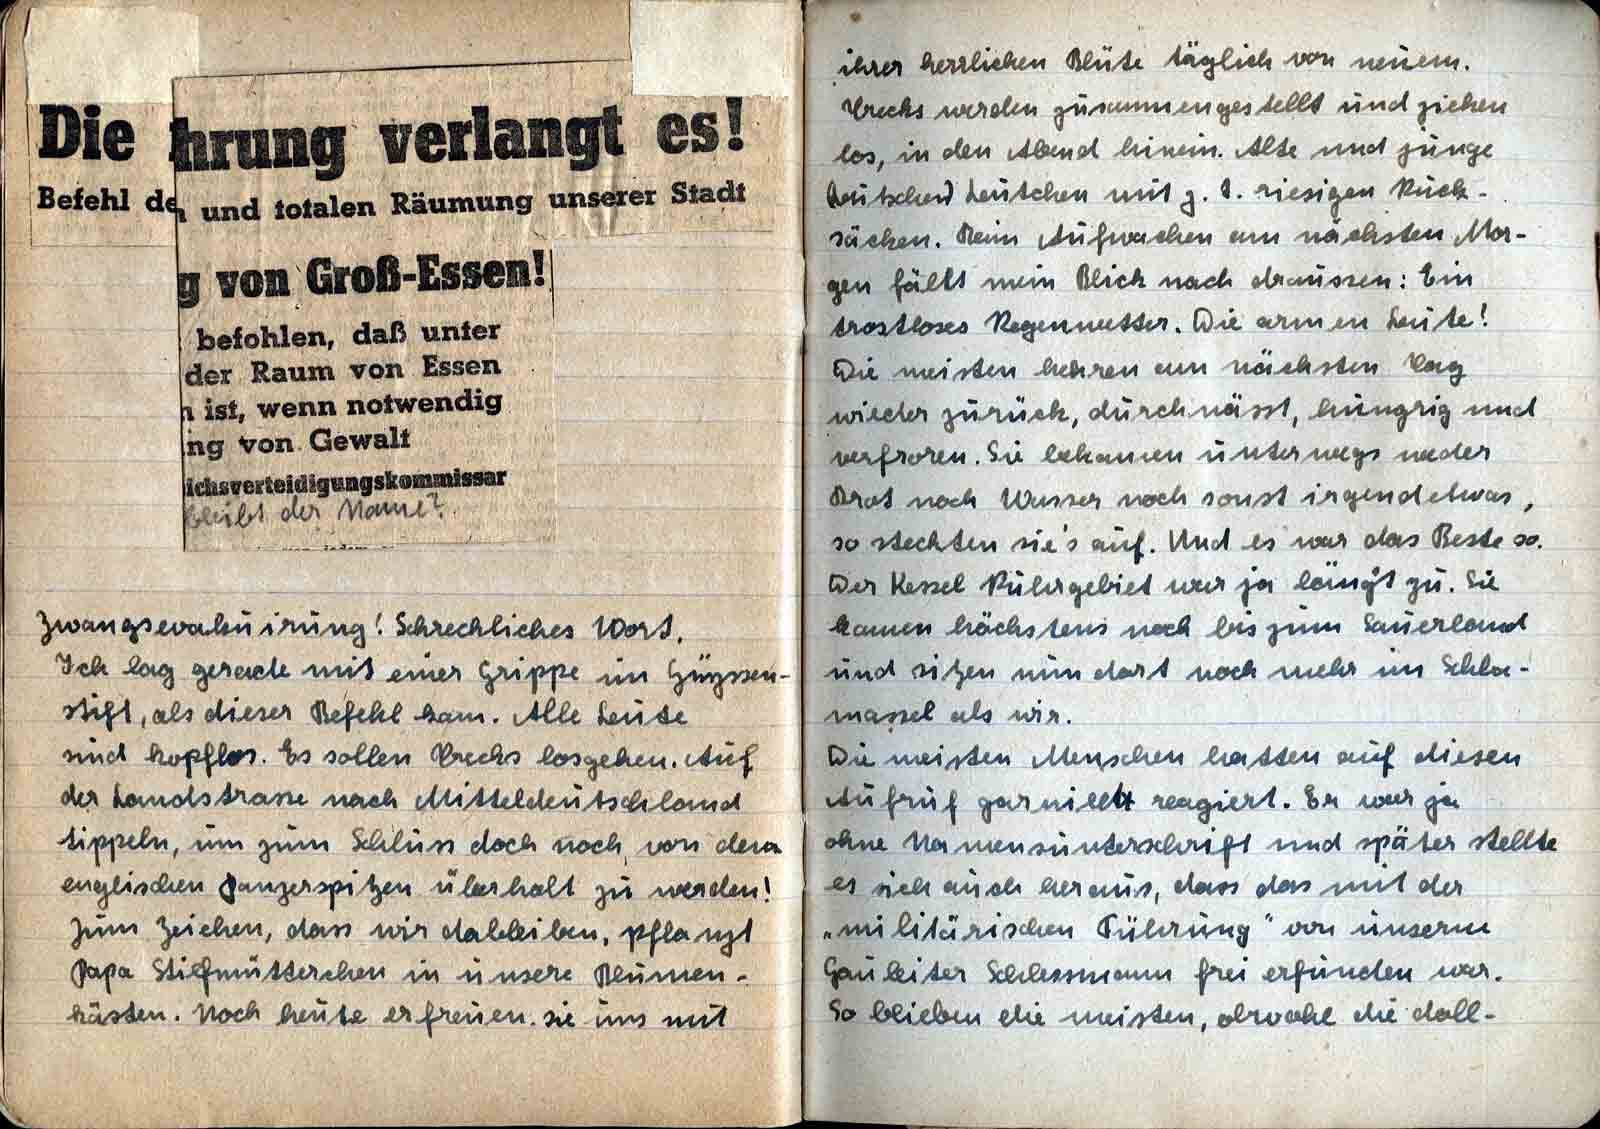 Die hrung verlangt es!
Befehl de n und totalen Räumung unserer Stadt
g von Groß-Essen!
befohlen, daß unter
der Raum von Essen
n ist, wenn notwendig
ng von Gewalt
ichsverteidigungskommissar
bleibt der Name?
Zwangsevakuirung! Schreckliches Wort.
Ich lag gerade mit einer Grippe im Hüyssen-
stift, als dieser Befehl kam. Alle Leute
sind kopflos. Es sollen Trecks losgehen. Auf
der Landstrasse nach Mitteldeutschland
tippeln, um zum Schluss doch noch von den
englischen Panzerspitzen überholt zu werden!
Zum Zeichen, dass wir dableiben, pflanzt
Papa Stiefmütterchen in unsere Blumen-
kästen. Noch heute erfreuen sie uns mit
ihrer herrlichen Blüte täglich von neuem.
Trecks werden zusammengestellt und ziehen
los, in den Abend hinein. Alte und junge
Leutchen mit z. T. riesigen Ruck-
säcken. Beim Aufwachen am nächsten Mor-
gen fällt mein Blick nach draussen: Ein
trostloses Regenwetter. Die armen Leute!
Die meisten kehren am nächsten Tag
wieder zurück, durchnässt, hungrig und
verfroren. Sie bekamen unterwegs weder
Brot noch Wasser noch sonst irgendetwas,
so steckten sie's auf. Und es war das Beste so.
Der Kessel Ruhrgebiet war ja längst zu. Sie
kamen höchstens noch bis zum Sauerland
und sitzen nun dort noch mehr im Schla-
massel als wir.
Die meisten Menschen hatten auf diesen
Aufruf garnicht reagiert. Er war ja
ohne Namensunterschrift und später stellte
es sich auch heraus, dass das mit der
„militärischen Führung" von unserm
Gauleiter Schlessmann frei erfunden war.
So blieben die meisten, obwohl die doll-